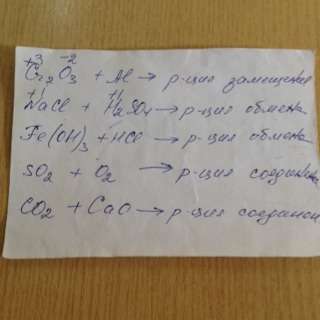 +3 -2
Cr2O3 + Al → р-ция замещения
+1 +1
NaCl + H2SO4 → р-ция обмена
Fe(OH)3 + HCl → р-ция обмена
SO2 + O2 → р-ция соединен
CO2 + CaO → р-ция соединен